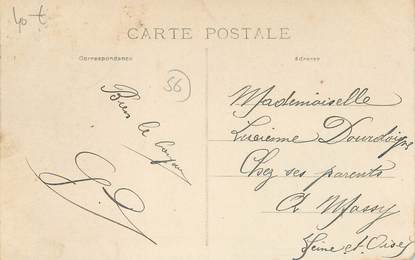 40 t
CARTE POSTALE
Correspondance
Adresse
56
Bien le
Mademoiselle
Lucienne
Chez ses parents
A Massy
Seine et Oise